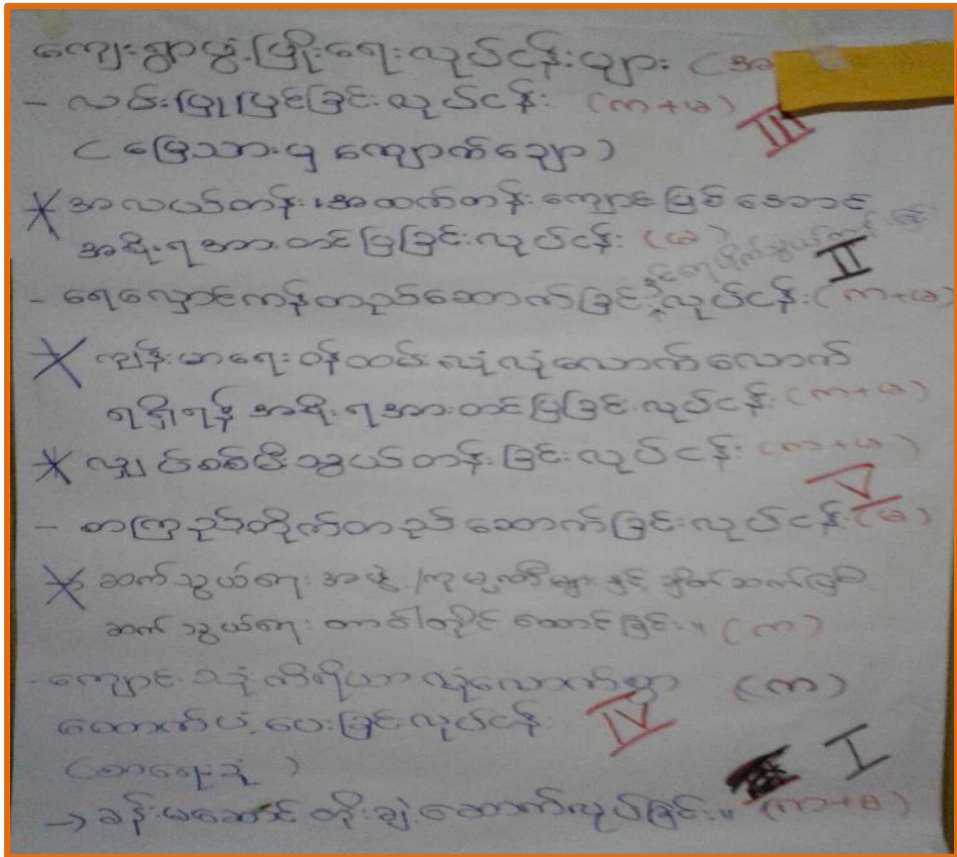 ကျေးရွာဖွံ့ဖြိုးရေးလုပ်ငန်းများ (အ
- လမ်းပြုပြင်ခြင်းလုပ်ငန်း (က+မ) III
(မြေသားမှ ကျောက်ချော)
အလယ်တန်း၊ အထက်တန်းကျောင်းဖြစ်အောင်
အစိုးရအားတင်ပြခြင်းလုပ်ငန်း (မ)
- ရေလှောင်ကန်တည်ဆောက်ခြင်းလုပ်ငန်း (က+မ) II
ကျန်းမာရေးဝန်ထမ်းလုံလုံလောက်လောက်
ရရှိရန် အစိုးရအားတင်ပြခြင်းလုပ်ငန်း (က+မ)
လျှပ်စစ်မီးသွယ်တန်းခြင်းလုပ်ငန်း (က+မ)
- စာကြည့်တိုက်တည်ဆောက်ခြင်းလုပ်ငန်း (မ) V
ဆက်သွယ်ရေးအဖွဲ့/ကုမ္ပဏီများနှင့် ချိတ်ဆက်၍
ဆက်သွယ်ရေးတာဝါတိုင် ထောင်ခြင်း။ (က)
- ကျောင်းသုံးကိရိယာ လုံလောက်စွာ (က)
ထောက်ပံ့ပေးခြင်းလုပ်ငန်း IV
(စာရေးခုံ)
→ ခန်းမဆောင် တိုးချဲ့ဆောက်လုပ်ခြင်း။ (က+မ) I